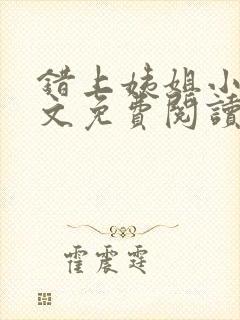 錯上姨姐小
文免費閱讀
霍震霆